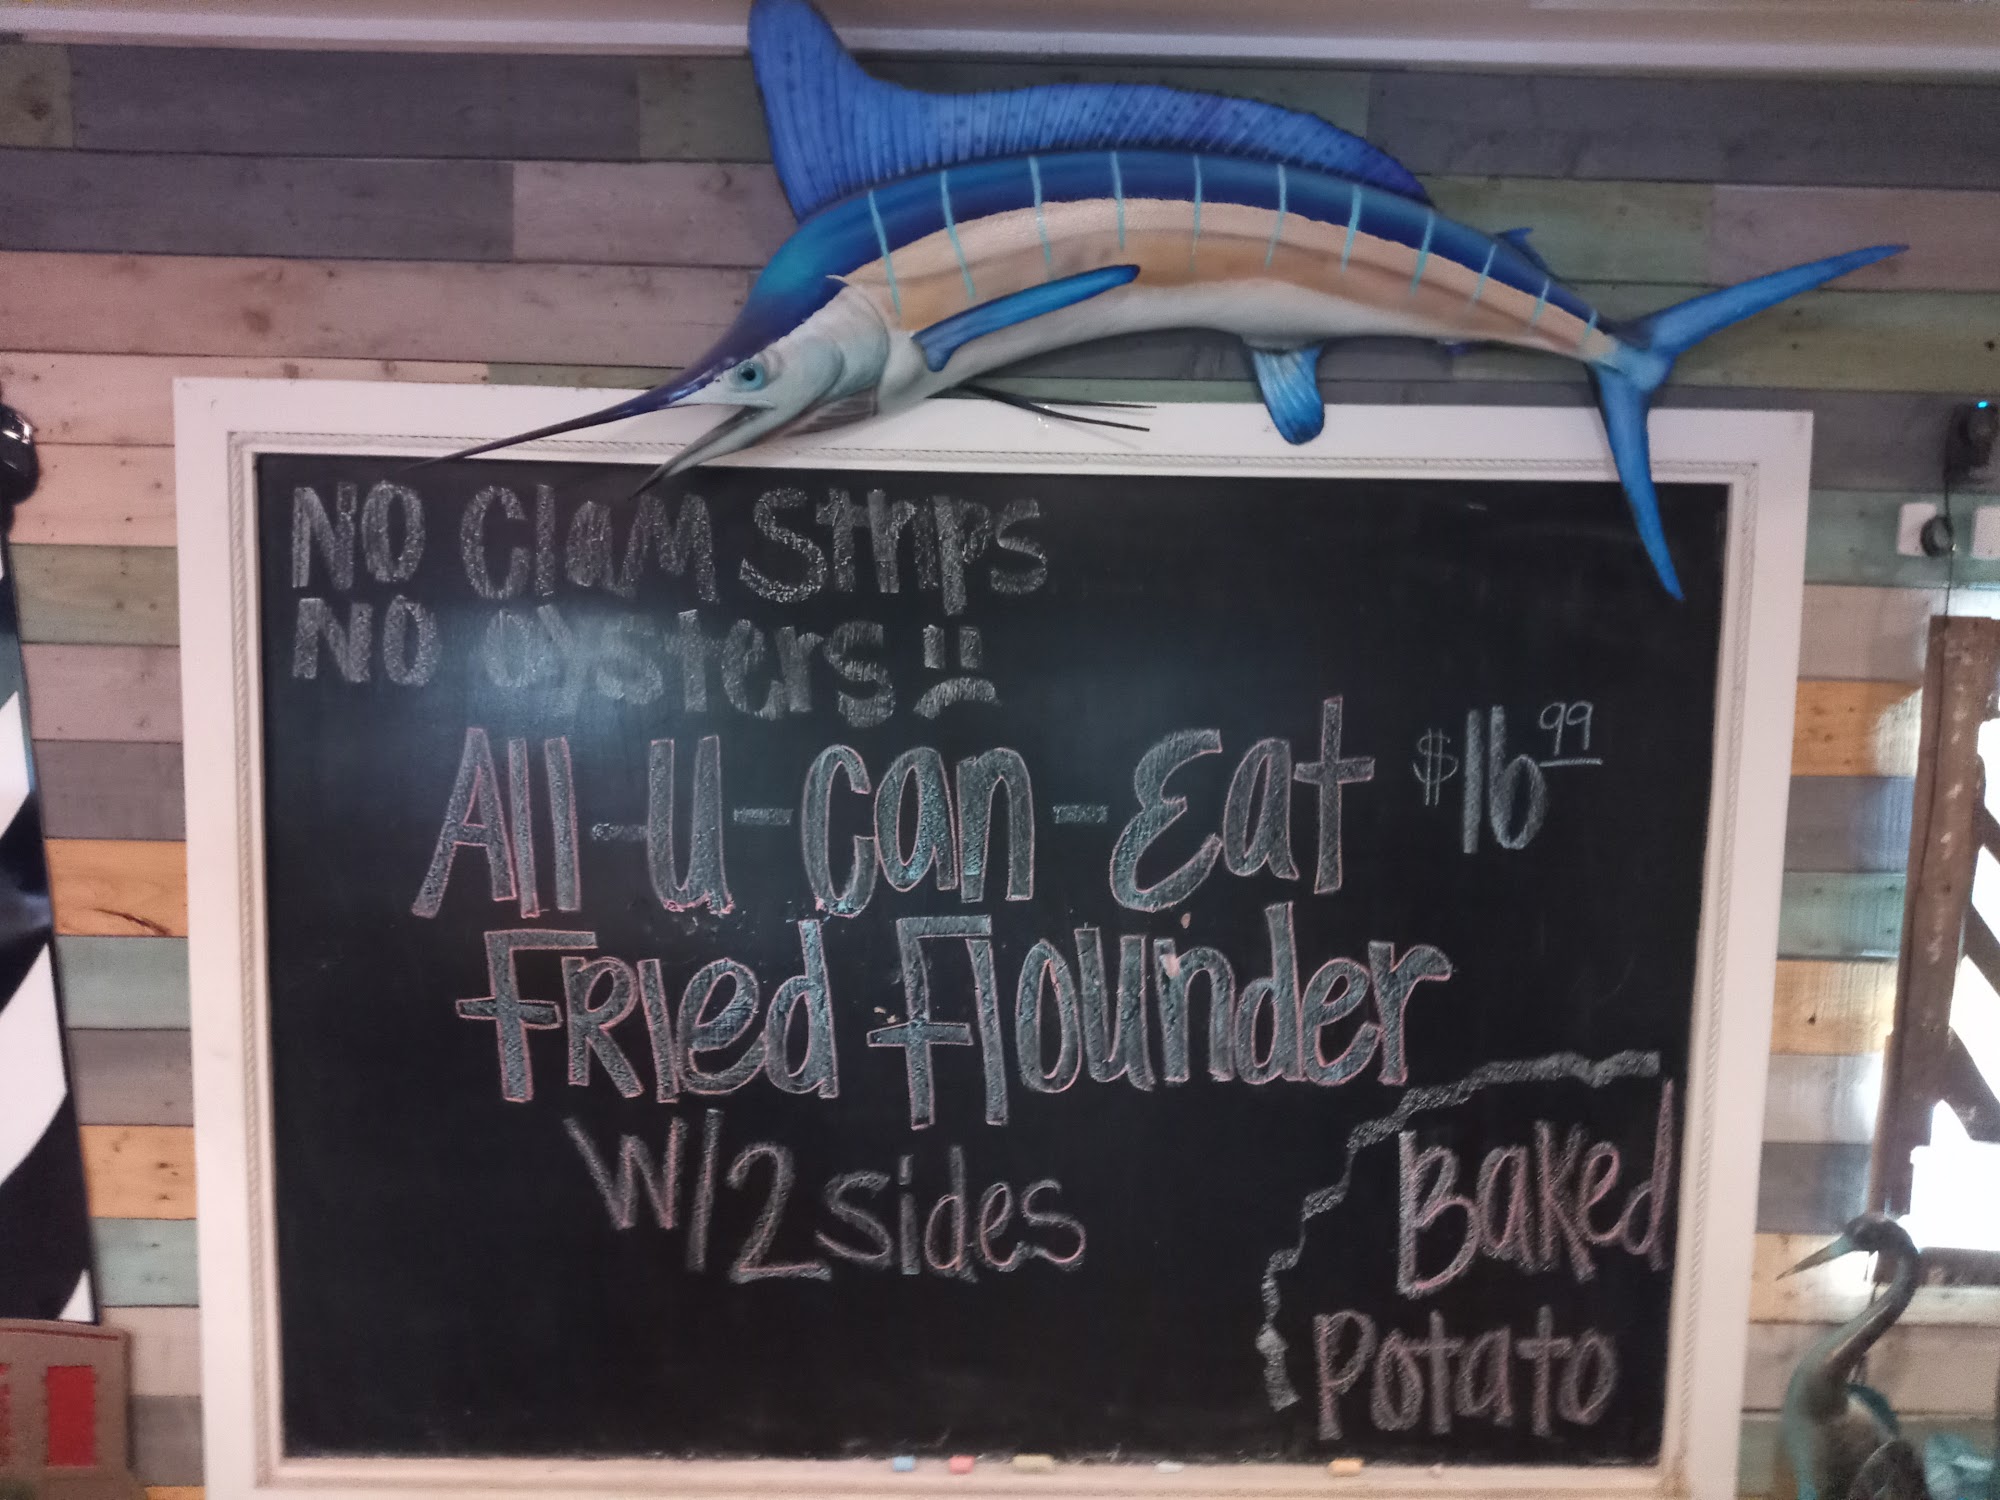 NO Clam Strips
NO Oysters
All-U-Can-Eat $16.99
Fried Flounder
W/2 sides
Baked
Potato